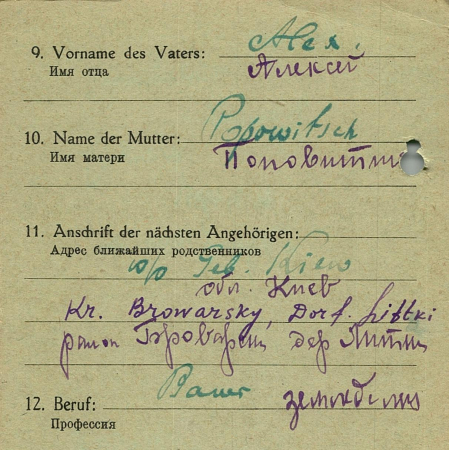 9. Vorname des Vaters: Alex.
Имя отца Алексей
10. Name der Mutter: Popowitsch
Имя матери
11. Anschrift der nächsten Angehörigen:
Адрес ближайших родственников
Geb. Kiew
обл. Киев
Kr. Browarsky, Dorf. Littki
район дер
12. Beruf: Bauer
Профессия